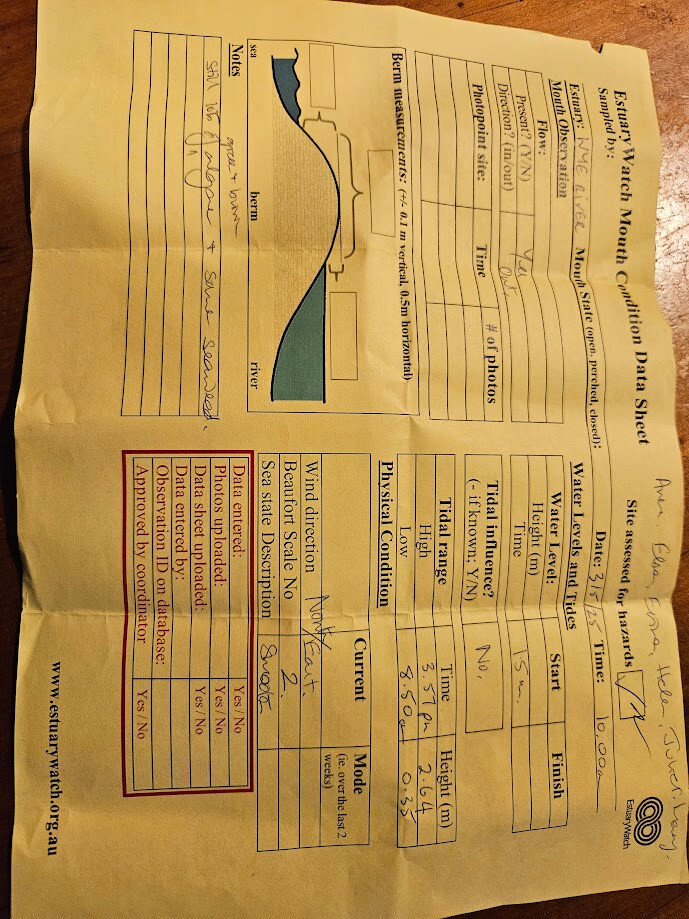 EstuaryWatch Mouth Condition Data Sheet
Sampled by:
Site assessed for hazards
EstuaryWatch
Estuary: WYE RIVER Mouth State (open, perched, closed): Date: 3/5/25 Time: 10.00am
Mouth Observation
Flow:
Present? (Y/N) Yes
Direction? (in/out) Out
Photopoint site: Time # of photos
Water Levels and Tides
Water Level: Start Finish
Height (m) 15 m.
Time
Tidal influence?
(- if known; Y/N) No.
Tidal range Time Height (m)
High 3.57 pm 2.64
Low 8.50am
Berm measurements: (+/- 0.1 m vertical, 0.5m horizontal)
sea berm river
Physical Condition
Current Mode
(ie. over the last 2
weeks)
Wind direction North/East.
Beaufort Scale No 2.
Sea state Description
Notes
green + brown
still lots of algae + some seaweed.
Data entered: Yes / No
Photos uploaded: Yes / No
Data sheet uploaded: Yes / No
Data entered by:
Observation ID on database:
Approved by coordinator Yes / No
www.estuarywatch.org.au